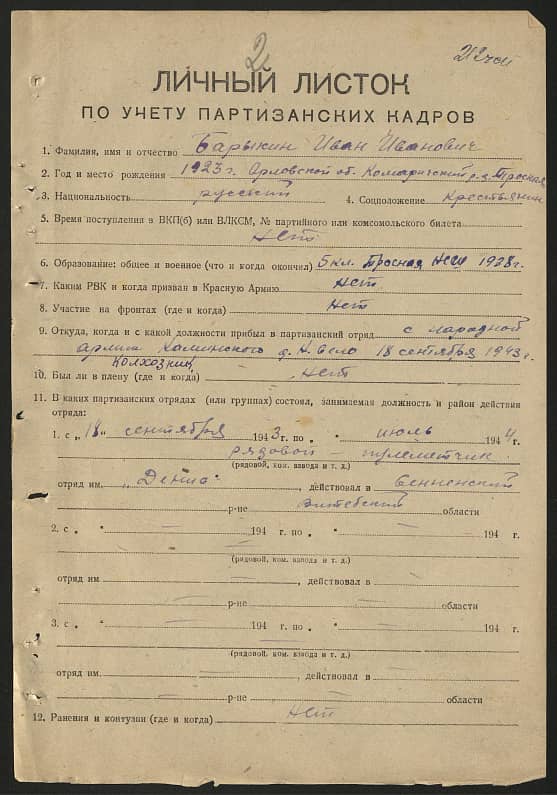 2
ЛИЧНЫЙ ЛИСТОК
ПО УЧЕТУ ПАРТИЗАНСКИХ КАДРОВ
1. Фамилия, имя и отчество Барыкин Иван Иванович
2. Год и место рождения 1923 г. Орловской об. Комаричский р-н
3. Национальность русский 4. Соцположение крестьянин
5. Время поступления в ВКП(б) или ВЛКСМ, № партийного или комсомольского билета
нет
6. Образование: общее и военное (что и когда окончил) 5 кл. НСШ 1938 г.
7. Каким РВК и когда призван в Красную Армию нет
8. Участие на фронтах (где и когда) нет
9. Откуда, когда и с какой должности прибыл в партизанский отряд с народной
армии Каминского д. 18 сентября 1943 г.
колхозник
10. Был ли в плену (где и когда) нет
11. В каких партизанских отрядах (или группах) состоял, занимаемая должность и район действия
отряда:
1. с „18" сентября 1943 г. по „ " июль 1944 г.
рядовой - пулеметчик
(рядовой, ком. взвода и т. д.)
отряд им. , действовал в Сенненский
р-не Витебский области
2. с „ " 194 г. по „ " 194 г.
(рядовой, ком. взвода и т. д.)
отряд им. , действовал в
р-не области
3. с „ " 194 г. по „ " 194 г.
(рядовой, ком. взвода и т. д.)
отряд им. , действовал в
р-не области
12. Ранения и контузии (где и когда) нет